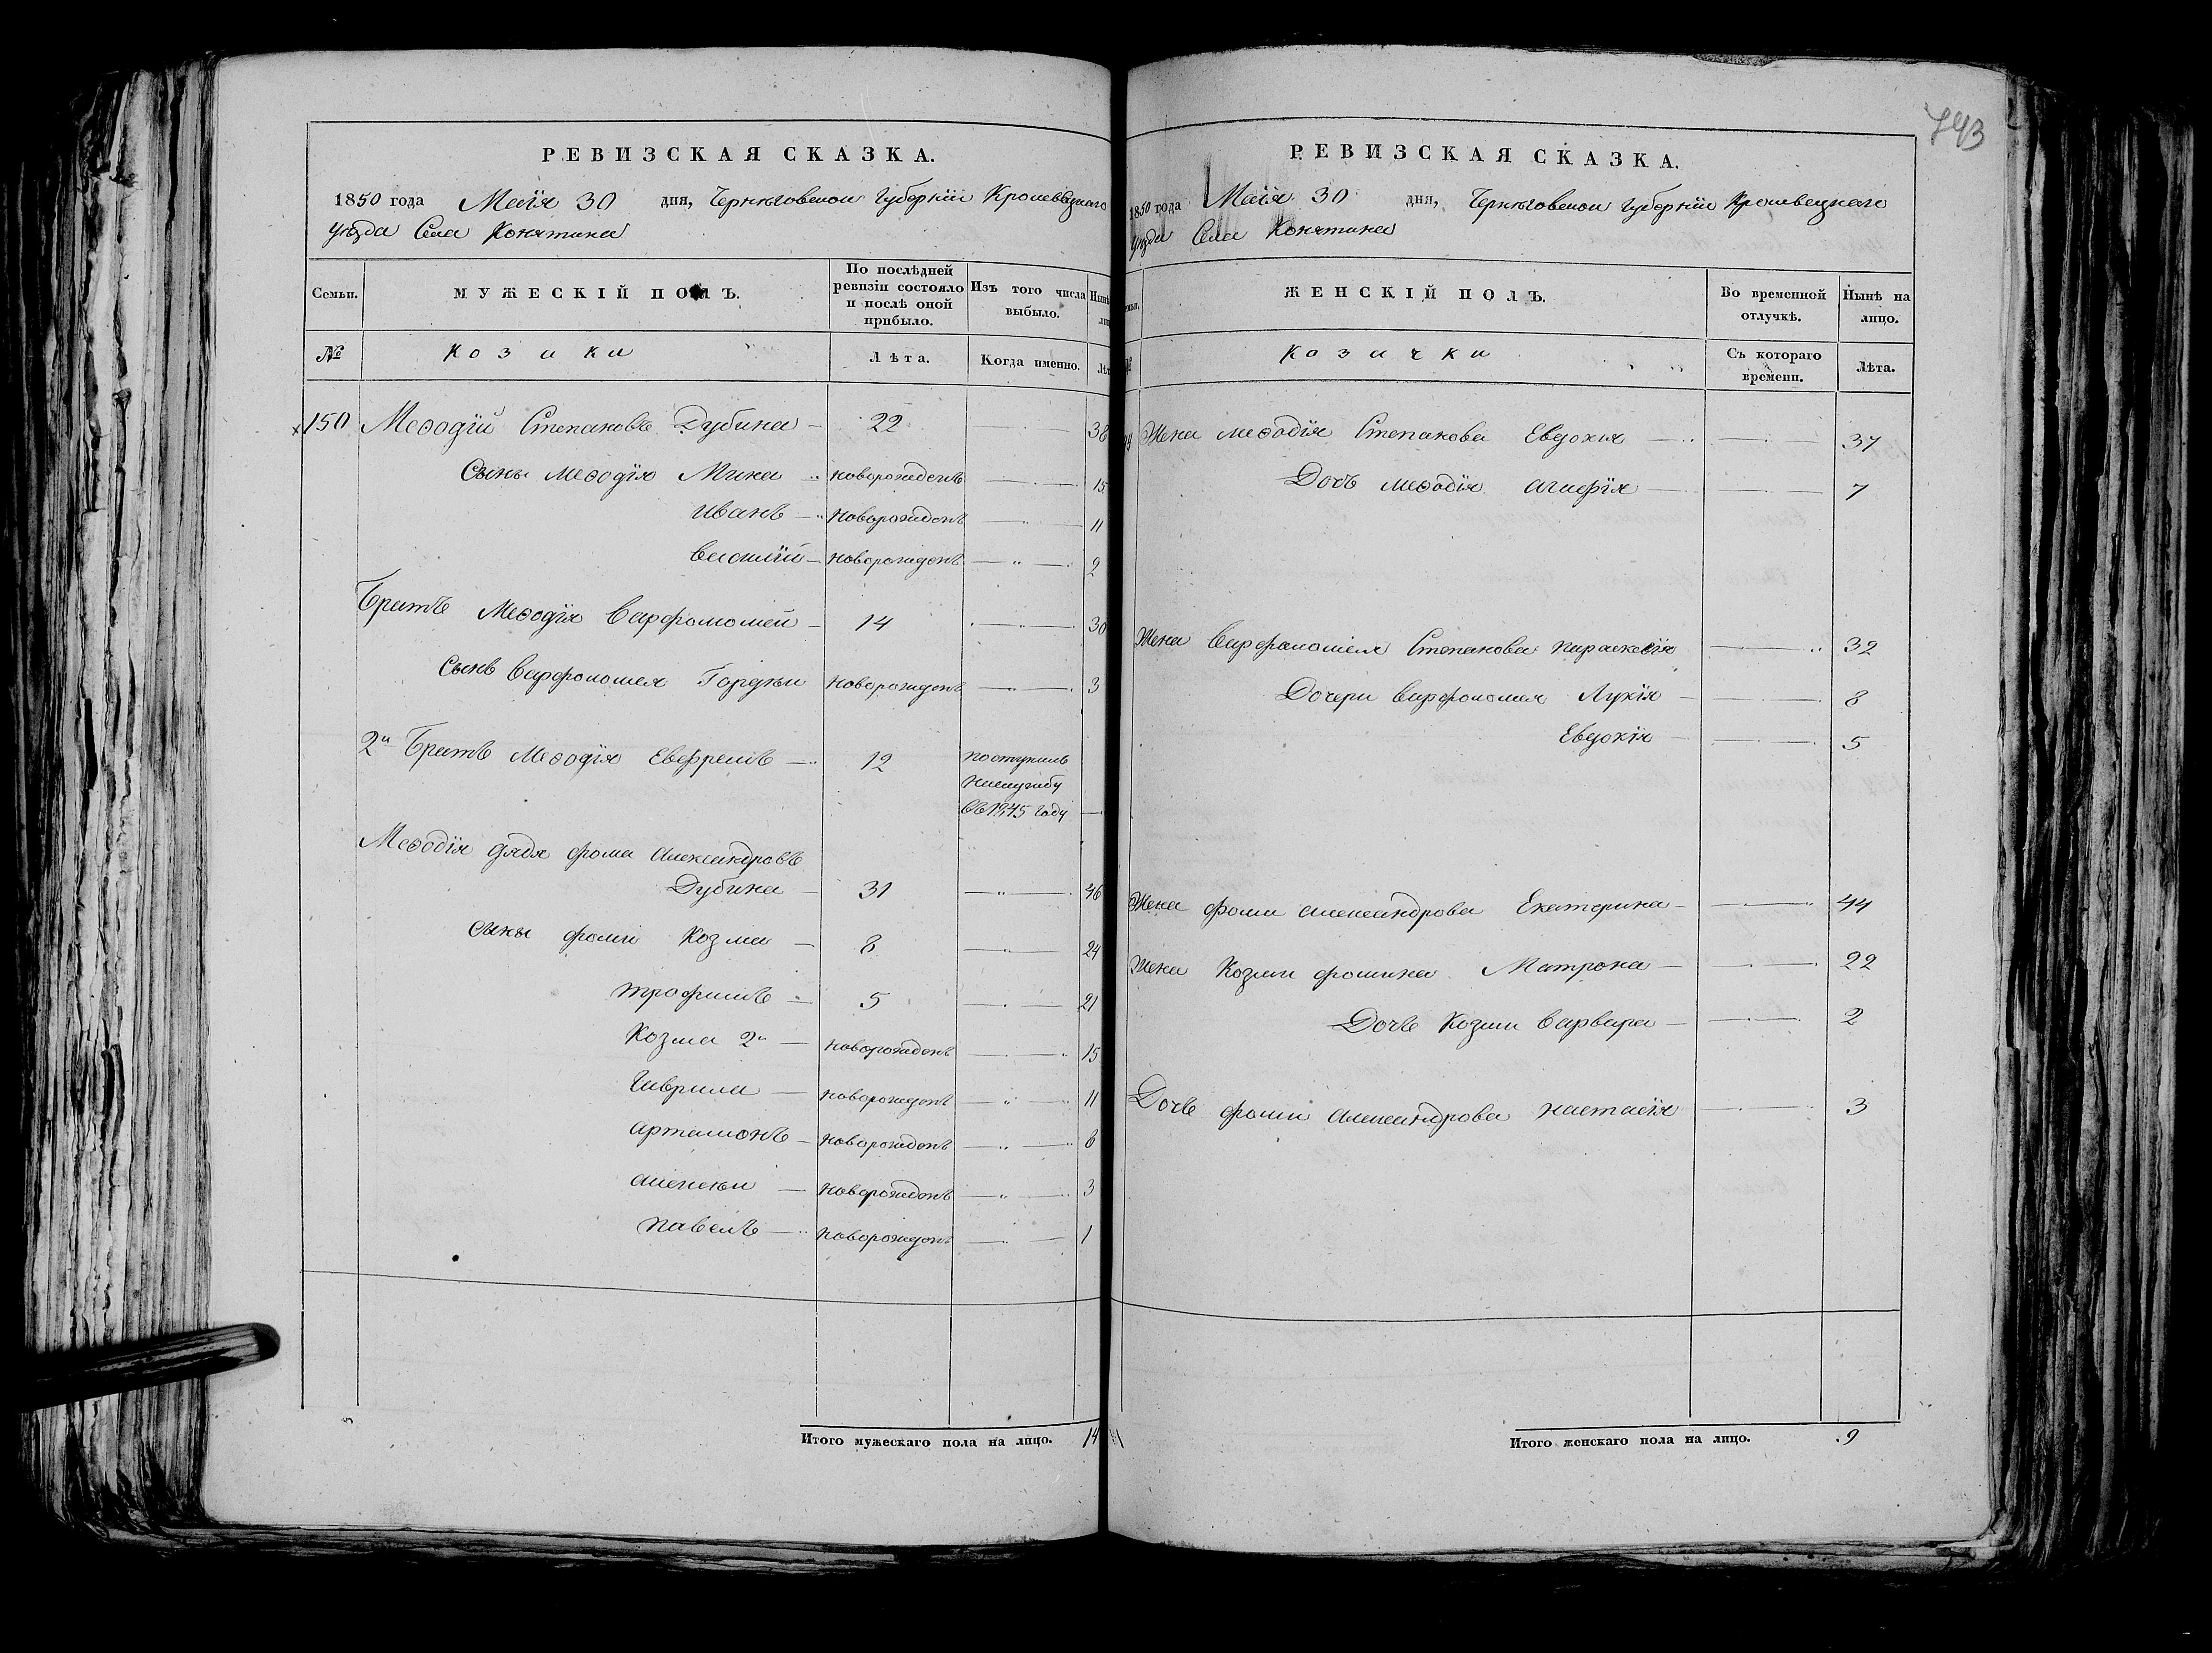 743
РЕВИЗСКАЯ СКАЗКА.
1850 года Маія 30 дня, Черниговской Губерніи Кролевецкаго
уѣзда Села Конятина
Семьи.
МУЖЕСКІЙ ПОЛЪ.
По послѣдней ревизіи состояло и послѣ оной прибыло.
Изъ того числа выбыло.
№
Козаки
Лѣта.
Когда именно.
150 Меѳодій Степановъ Дубина 22 38
Сыны Меѳодія Мина новорожденъ 15
Иванъ новорожденъ 11
Василій новорожденъ 2
Братъ Меѳодія Варфоломей 14 30
Сынъ Варфоломея Гордѣй новорожденъ 3
2й Братъ Меѳодія Евфремъ 12 поступилъ
на службу
въ 1845 году
Меѳодія дядя Фома Александровъ
Дубина 31 46
Сыны Фомы Козма 8 24
Трофимъ 5 21
Козма 2й новорожденъ 15
Гаврила новорожденъ 11
Артамонъ новорожденъ 6
Алексѣй новорожденъ 3
Павелъ новорожденъ 1
Итого мужескаго пола на лицо. 14
РЕВИЗСКАЯ СКАЗКА.
1850 года Маія 30 дня, Черниговской Губерніи Кролевецкаго
уѣзда Села Конятина
ЖЕНСКІЙ ПОЛЪ.
Во временной отлучкѣ.
Нынѣ на лицо.
Козачки
Съ котораго времени.
Лѣта.
Жена Меѳодія Степанова Евдокія 37
Дочь Меѳодія Агафія 7
Жена Варфоломея Степанова Параскевія 32
Дочери Варфоломея Лукія 8
Евдокія 5
Жена Фомы Александрова Екатерина 44
Жена Козмы Фомина Матрона 22
Дочь Козмы Варвара 2
Дочь Фомы Александрова Настасія 3
Итого женскаго пола на лицо. 9